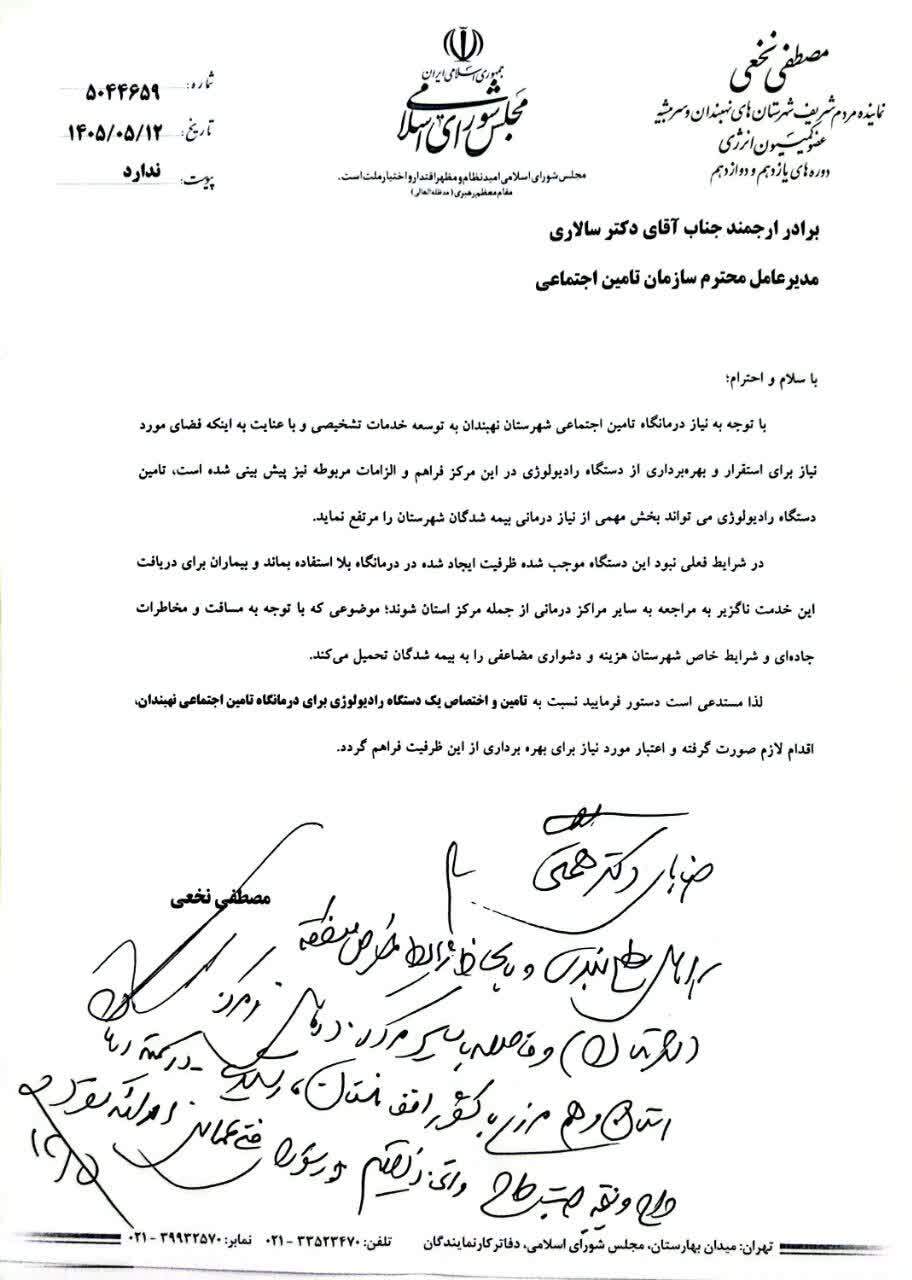 جمهوری اسلامی ایران
مجلس شورای اسلامی
مجلس شورای اسلامی امید نظام و مظهر اقتدار و اختیار ملت است.
مقام معظم رهبری (مدظله العالی)
مصطفی نخعی
نماینده مردم شریف شهرستان های نهبندان و سربیشه
عضو کمیسیون انرژی
دوره های یازدهم و دوازدهم
شماره: ۵۰۴۴۶۵۹
تاریخ: ۱۴۰۵/۰۵/۱۲
پیوست: ندارد
برادر ارجمند جناب آقای دکتر سالاری
مدیرعامل محترم سازمان تامین اجتماعی
با سلام و احترام؛
با توجه به نیاز درمانگاه تامین اجتماعی شهرستان نهبندان به توسعه خدمات تشخیصی و با عنایت به اینکه فضای مورد
نیاز برای استقرار و بهره‌برداری از دستگاه رادیولوژی در این مرکز فراهم و الزامات مربوطه نیز پیش بینی شده است، تامین
دستگاه رادیولوژی می تواند بخش مهمی از نیاز درمانی بیمه شدگان شهرستان را مرتفع نماید.
در شرایط فعلی نبود این دستگاه موجب شده ظرفیت ایجاد شده در درمانگاه بلا استفاده بماند و بیماران برای دریافت
این خدمت ناگزیر به مراجعه به سایر مراکز درمانی از جمله مرکز استان شوند؛ موضوعی که با توجه به مسافت و مخاطرات
جاده‌ای و شرایط خاص شهرستان هزینه و دشواری مضاعفی را به بیمه شدگان تحمیل می‌کند.
لذا مستدعی است دستور فرمایید نسبت به تامین و اختصاص یک دستگاه رادیولوژی برای درمانگاه تامین اجتماعی نهبندان،
اقدام لازم صورت گرفته و اعتبار مورد نیاز برای بهره برداری از این ظرفیت فراهم گردد.
مصطفی نخعی
جناب آقای دکتر همتی
سطح بندی و با لحاظ شرایط خاص منطقه
و فاصله با سایر مراکز درمانی و مرکز
استان و هم مرزی با کشور افغانستان،
تهران: میدان بهارستان، مجلس شورای اسلامی، دفاتر کار نمایندگان تلفن: ۳۳۵۲۳۴۷۰ - ۰۲۱ نمابر: ۳۹۹۳۲۵۷۰ - ۰۲۱